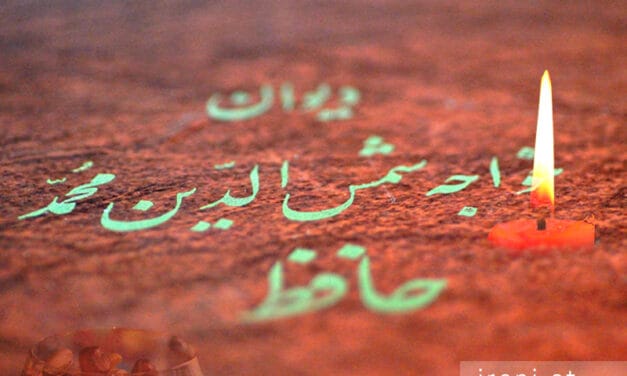 دیوان
خواجه شمس الدّین مُحمّد
حافظ
irani.at